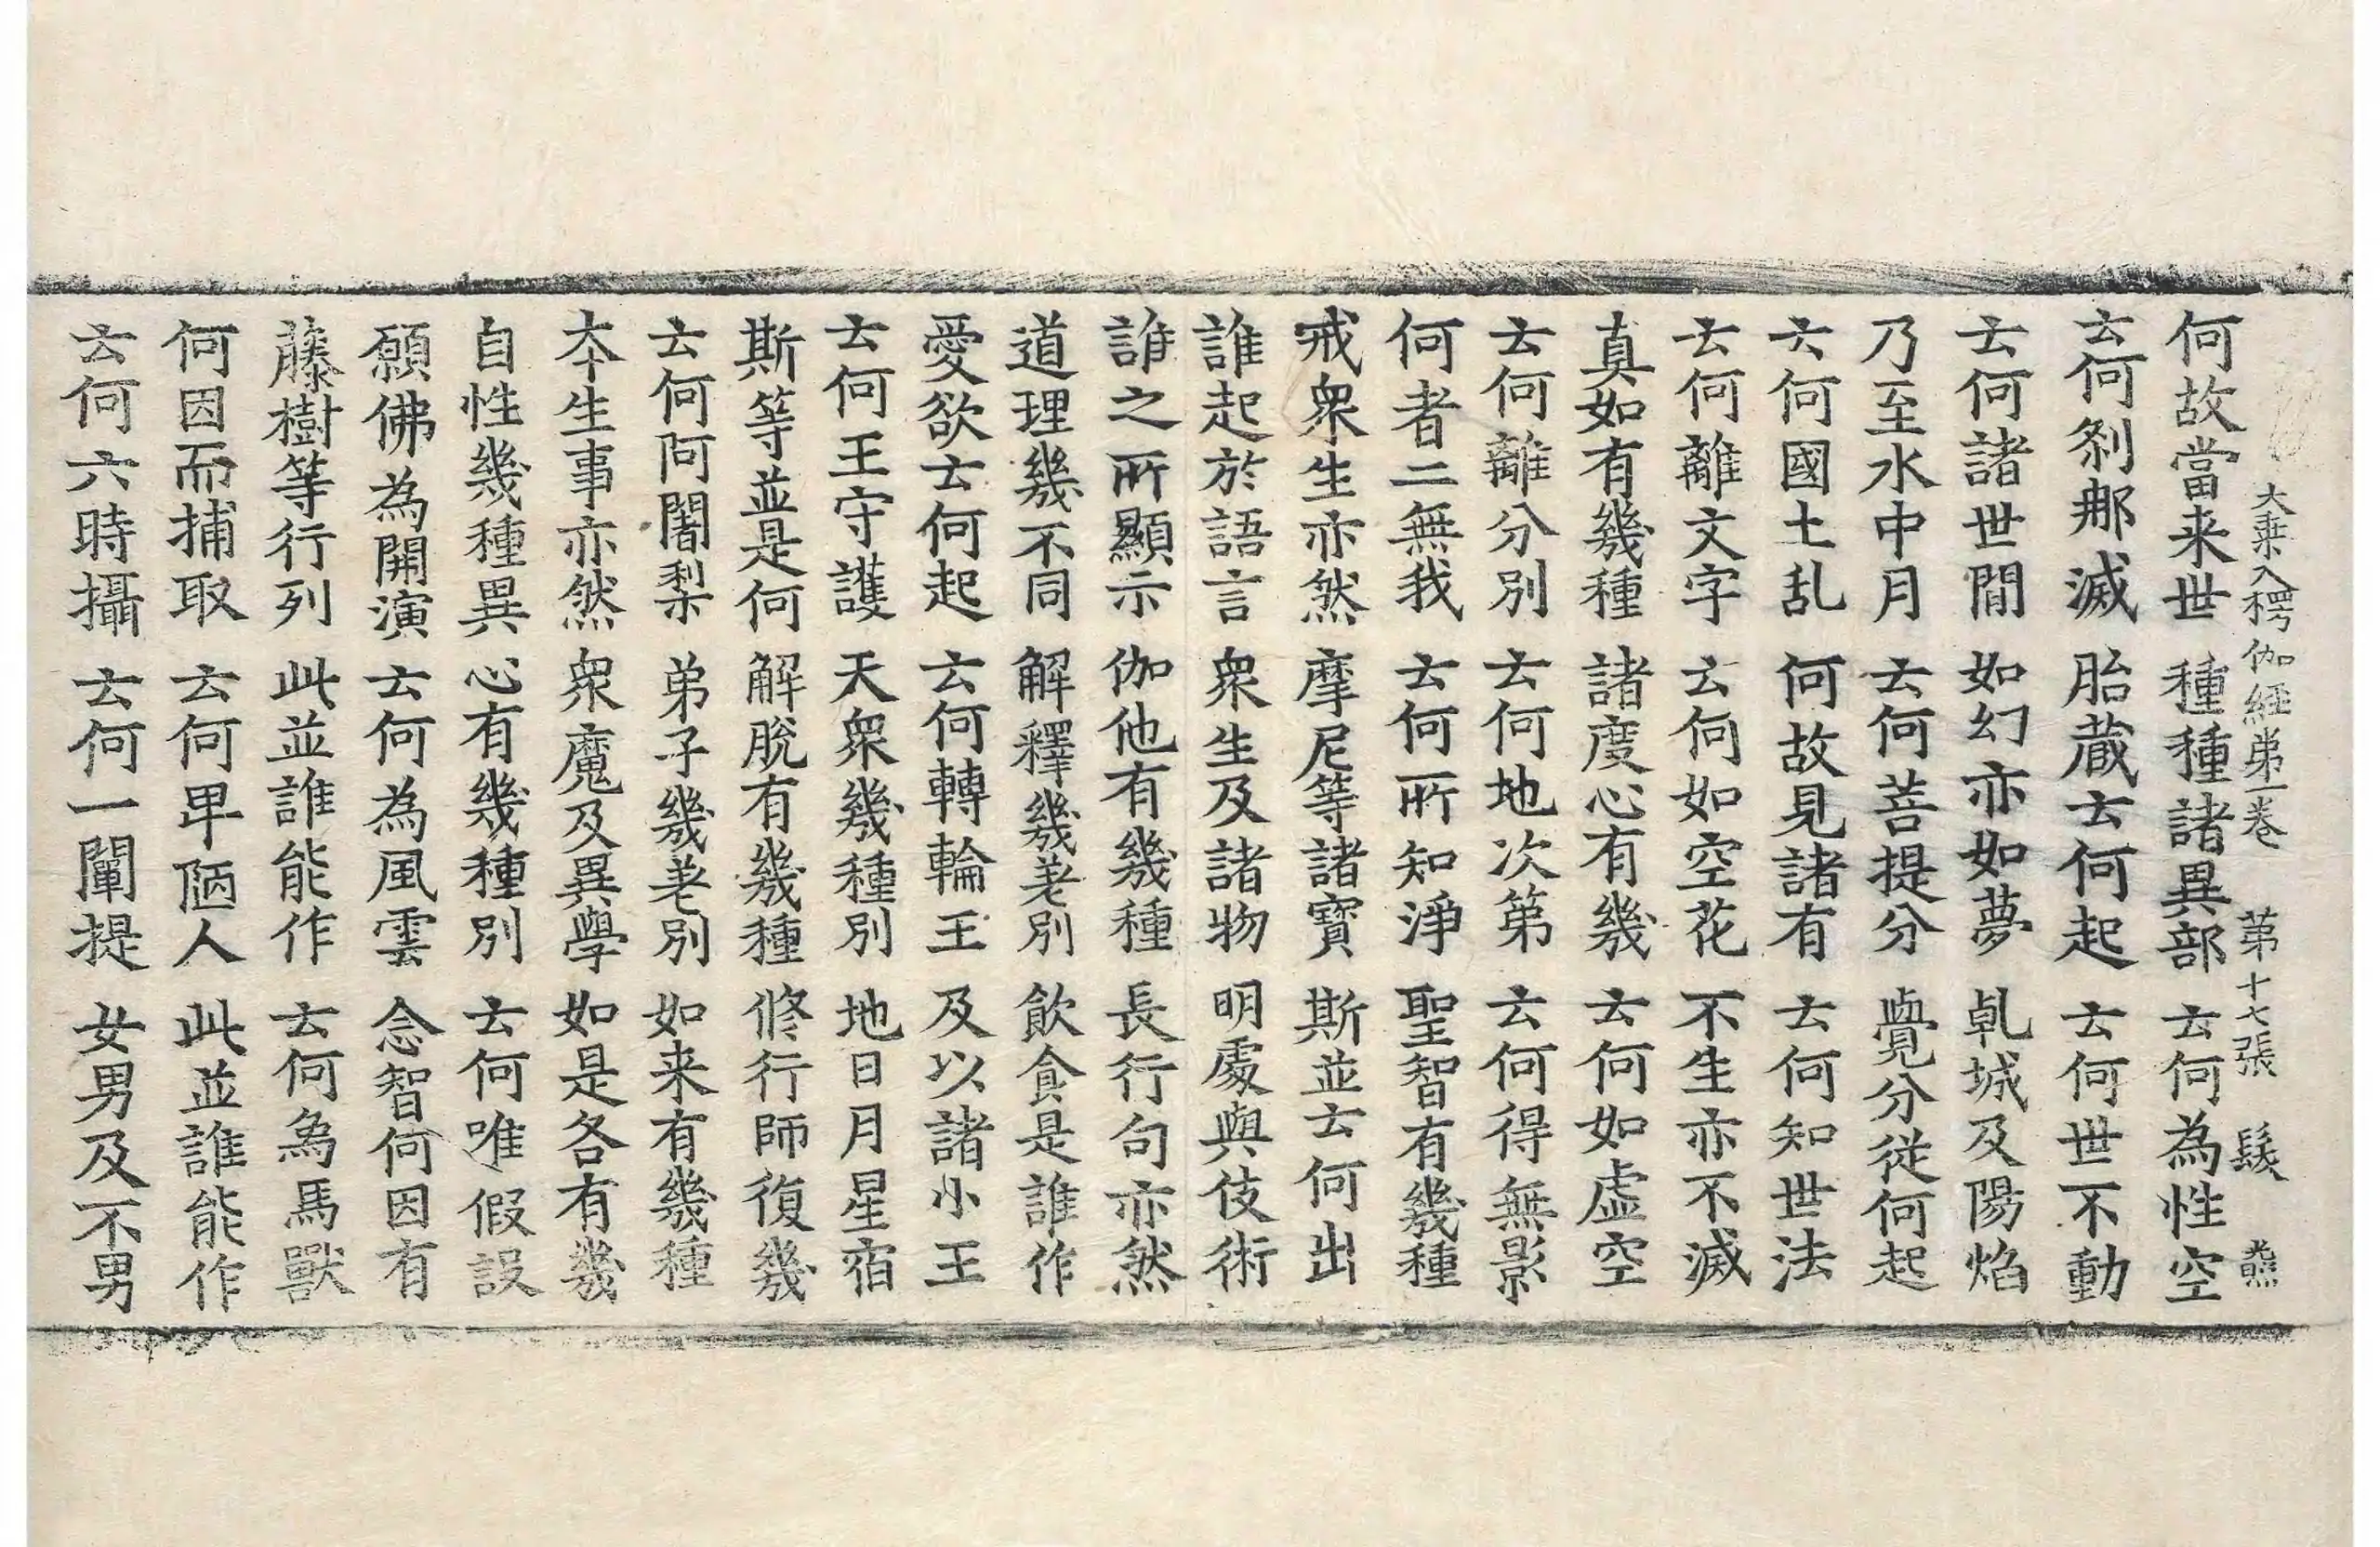 大乗入楞伽経苐一卷 苐十七張 髮
何故當来世 種種諸異部 云何為性空
云何剎那滅 胎蔵云何起 云何世不動
云何諸世間 如幻亦如夢 乹城及陽焰
乃至水中月 云何菩提分 覺分従何起
云何國土乱 何故見諸有 云何知世法
云何離文字 云何如空花 不生亦不滅
真如有幾種 諸度心有幾 云何如虚空
云何離分別 云何地次第 云何得無影
何者二無我 云何所知淨 聖智有幾種
戒衆生亦然 摩尼等諸寶 斯並云何出
誰起於語言 衆生及諸物 明處與伎術
誰之所顯示 伽他有幾種 長行句亦然
道理幾不同 解釋幾差別 飲食是誰作
愛欲云何起 云何轉輪王 及以諸小王
云何王守護 天衆幾種別 地日月星宿
斯等並是何 解脫有幾種 修行師復幾
云何阿闍梨 弟子幾差別 如来有幾種
本生事亦然 衆魔及異學 如是各有幾
自性幾種異 心有幾種別 云何唯假設
願佛為開演 云何為風雲 念智何因有
藤樹等行列 此並誰能作 云何為馬獸
何因而捕取 云何卑陋人 此並誰能作
云何六時攝 云何一闡提 女男及不男